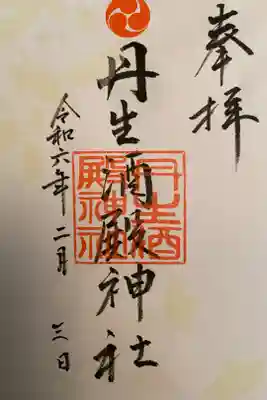 奉拝
丹生酒殿神社
丹生酒殿神社
令和六年二月三日